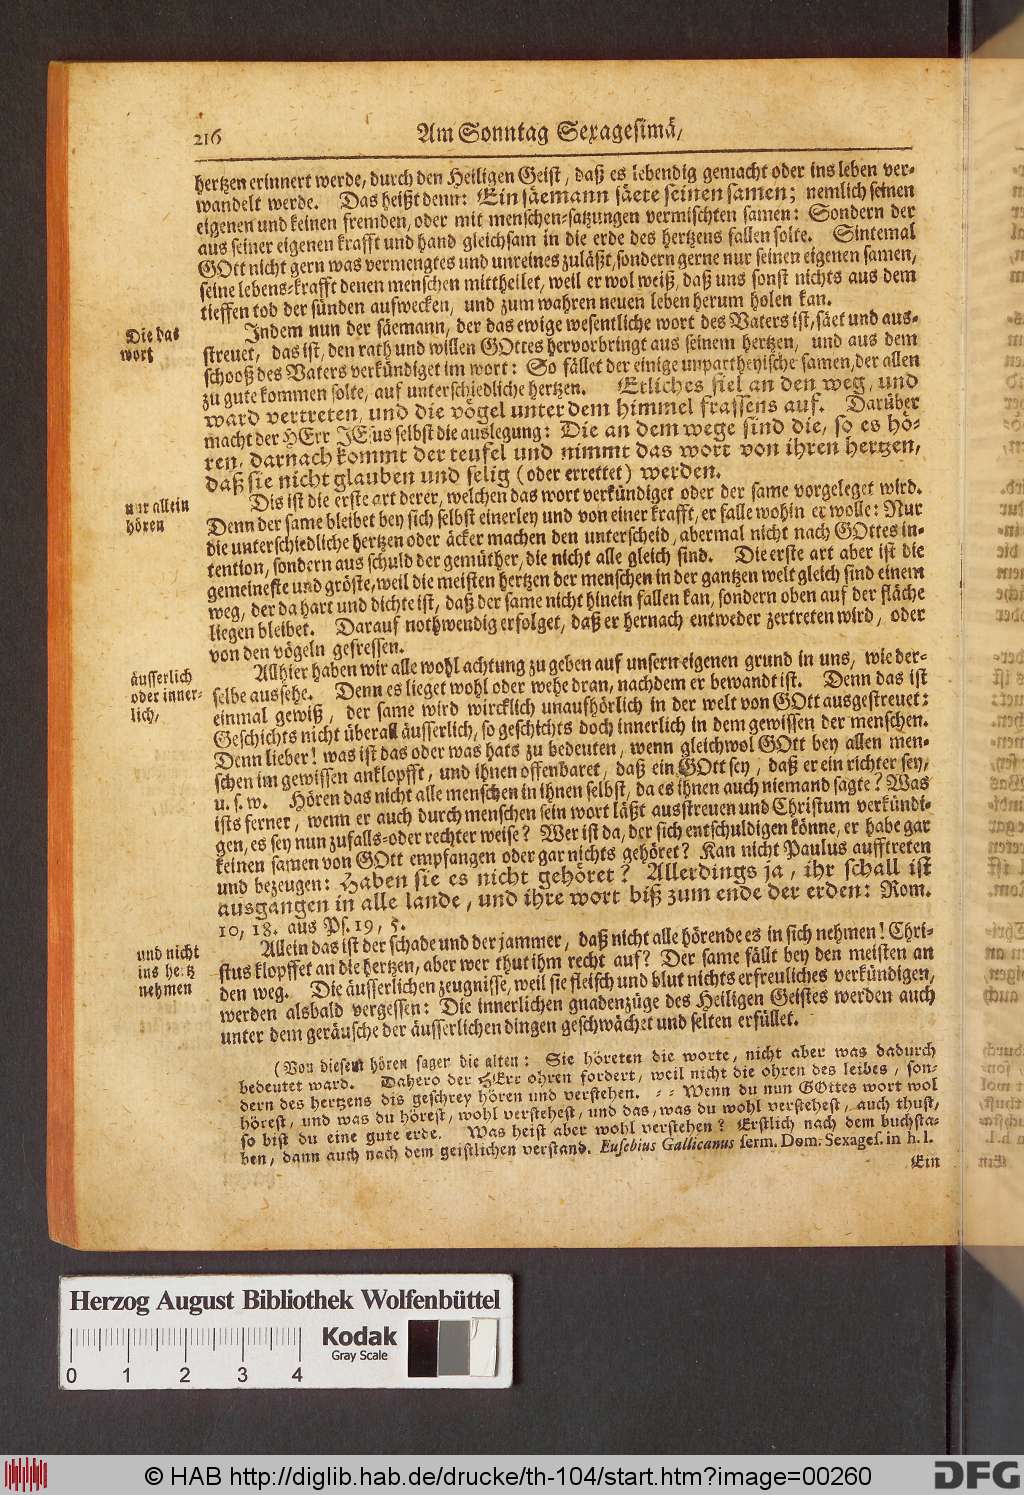 216
Am Sonntag Sexagesimä/
hertzen erinnert werde, durch den Heiligen Geist, daß es lebendig gemacht oder ins leben ver-
wandelt werde. Das heißt denn: Ein säemann säete seinen samen; nemlich seinen
eigenen und keinen fremden, oder mit menschen-satzungen vermischten samen: Sondern der
aus seiner eigenen krafft und hand gleichsam in die erde des hertzens fallen solte. Sintemal
GOtt nicht gern was vermengtes und unreines zuläßt, sondern gerne nur seinen eigenen samen,
seine lebens-krafft denen menschen mittheilet, weil er wol weiß, daß uns sonst nichts aus dem
tieffen tod der sünden aufwecken, und zum wahren neuen leben herum holen kan.
Die das
wort
Indem nun der säemann, der das ewige wesentliche wort des Vaters ist, säet und aus-
streuet, das ist, den rath und willen GOttes hervorbringt aus seinem hertzen, und aus dem
schooß des Vaters verkündiget im wort: So fället der einige unpartheyische samen, der allen
zu gute kommen solte, auf unterschiedliche hertzen. Etliches fiel an den weg, und
ward vertreten, und die vögel unter dem himmel frassens auf. Darüber
macht der HErr JEsus selbst die auslegung: Die an dem wege sind die, so es hö-
ren, darnach kommt der teufel und nimmt das wort von ihren hertzen,
daß sie nicht glauben und selig (oder errettet) werden.
nur allein
hören
Dis ist die erste art derer, welchen das wort verkündiget oder der same vorgeleget wird.
Denn der same bleibet bey sich selbst einerley und von einer krafft, er falle wohin er wolle: Nur
die unterschiedliche hertzen oder äcker machen den unterscheid, abermal nicht nach GOttes in-
tention, sondern aus schuld der gemüther, die nicht alle gleich sind. Die erste art aber ist die
gemeineste und gröste, weil die meisten hertzen der menschen in der gantzen welt gleich sind einem
weg, der da hart und dichte ist, daß der same nicht hinein fallen kan, sondern oben auf der fläche
liegen bleibet. Darauf nothwendig erfolget, daß er hernach entweder zertreten wird, oder
von den vögeln gefressen.
äusserlich
oder inner-
lich,
Allhier haben wir alle wohl achtung zu geben auf unsern eigenen grund in uns, wie der-
selbe aussehe. Denn es lieget wohl oder wehe dran, nachdem er bewandt ist. Denn das ist
einmal gewiß, der same wird wircklich unaufhörlich in der welt von GOtt ausgestreuet:
Geschichts nicht überall äusserlich, so geschichts doch innerlich in dem gewissen der menschen.
Denn lieber! was ist das oder was hats zu bedeuten, wenn gleichwol GOtt bey allen men-
schen im gewissen anklopfft, und ihnen offenbaret, daß ein GOtt sey, daß er ein richter sey,
u. s. w. Hören das nicht alle menschen in ihnen selbst, da es ihnen auch niemand sagte? Was
ists ferner, wenn er auch durch menschen sein wort läßt ausstreuen und Christum verkündi-
gen, es sey nun zufalls- oder rechter weise? Wer ist da, der sich entschuldigen könne, er habe gar
keinen samen von GOtt empfangen oder gar nichts gehöret? Kan nicht Paulus aufftreten
und bezeugen: Haben sie es nicht gehöret? Allerdings ja, ihr schall ist
ausgangen in alle lande, und ihre wort biß zum ende der erden: Rom.
10, 18. aus Ps. 19, 5.
und nicht
ins hertz
nehmen
Allein das ist der schade und der jammer, daß nicht alle hörende es in sich nehmen! Chri-
stus klopffet an die hertzen, aber wer thut ihm recht auf? Der same fällt bey den meisten an
den weg. Die äusserlichen zeugnisse, weil sie fleisch und blut nichts erfreuliches verkündigen,
werden alsbald vergessen: Die innerlichen gnadenzüge des Heiligen Geistes werden auch
unter dem geräusche der äusserlichen dingen geschwächet und selten erfüllet.
(Von diesem hören sagen die alten: Sie höreten die worte, nicht aber was dadurch
bedeutet ward. Dahero der HErr ohren fordert, weil nicht die ohren des leibes, son-
dern des hertzens dis geschrey hören und verstehen. - - Wenn du nun GOttes wort wol
hörest, und was du hörest, wohl verstehest, und das, was du wohl verstehest, auch thust,
so bist du eine gute erde. Was heist aber wohl verstehen? Erstlich nach dem buchsta-
ben, dann auch nach dem geistlichen verstand. Eusebius Gallicanus serm. Dom. Sexages. in h. l.
Ein
Herzog August Bibliothek Wolfenbüttel
Kodak
Gray Scale
0 1 2 3 4
© HAB http://diglib.hab.de/drucke/th-104/start.htm?image=00260
DFG